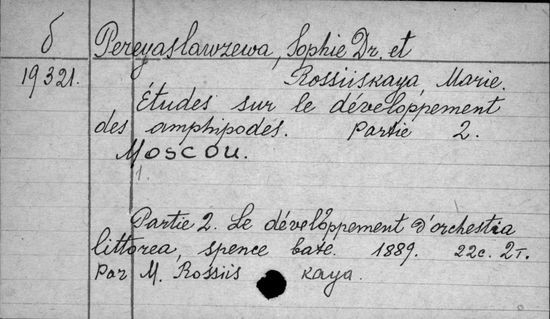 б Pereyaslawzewa, Sophie Dr. et
19321. Rossiiskaya, Marie.
Études sur le développement
des amphipodes. Partie 2.
Moscou.
1.
Partie 2. Le développement d'orchestia
littorea, spence bate. 1889. 22c. 2т.
Par M. Rossiis kaya.